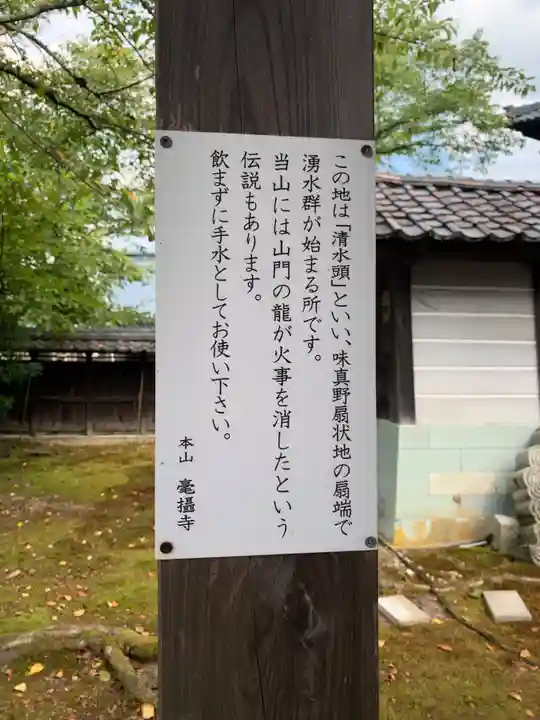 この地は「清水頭」といい、味真野扇状地の扇端で
湧水群が始まる所です。
当山には山門の龍が火事を消したという
伝説もあります。
飲まずに手水としてお使い下さい。
本山 毫攝寺